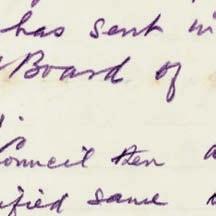 has sent in
Board of
Council ten a
ified same